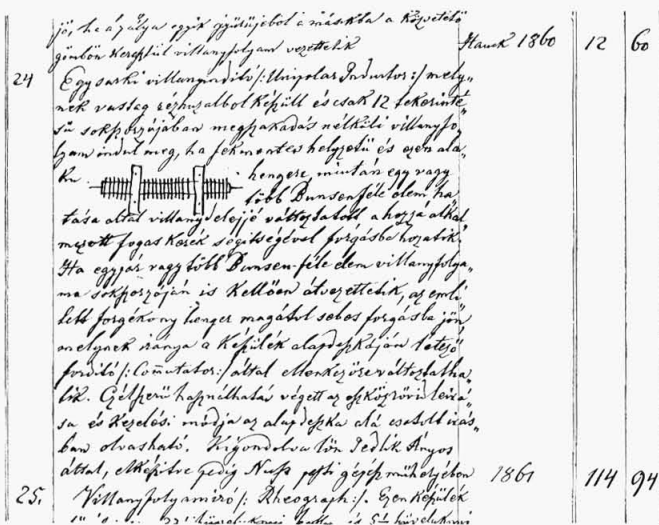 jő, ha á gálya egyik gyürüjéből a másikba a közvetítő
gömbön keresztül villanyfolyam vezettetik Hauck 1860 12 60
24 Egysarki villanyindító /: Unipolar Inductor :/ mely„
nek vastag rézhuzalból készült és csak 12 tekerintě„
sű sokszorozójában megszakadás nélküli villanyfo„
lyam indul meg, ha fekmentes helyzetű és ezen ala„
ku hengere, miután egy vagy
több Bunsenféle elem ha„
tása által villanydelejjé változtatott a hozzá alkal„
mazott fogaskerék segítségével forgásba hozatik.
Ha egy pár vagy több Bunsen-féle elem villanyfolya„
ma sokszorozóján is kellően átvezettetik, az emlí„
tett forgékony henger magától sebes forgásba jön
melynek iránya a készülék alapdeszkáján létező
fordító /: Commutator :/ által ellenkezőre változtatha„
tik. Czélszerű használhatás végett az eszköz rövid leírá„
sa és kezelési módja az alapdeszka alá csatolt írás„
ban olvasható. Kigondolva lőn Jedlik Ányos
által, elkészítve pedig Nuss pesti gépész műhelyében 1861 114 94
25. Villanyfolyamiró /: Rheograph :/. Ezen készülék